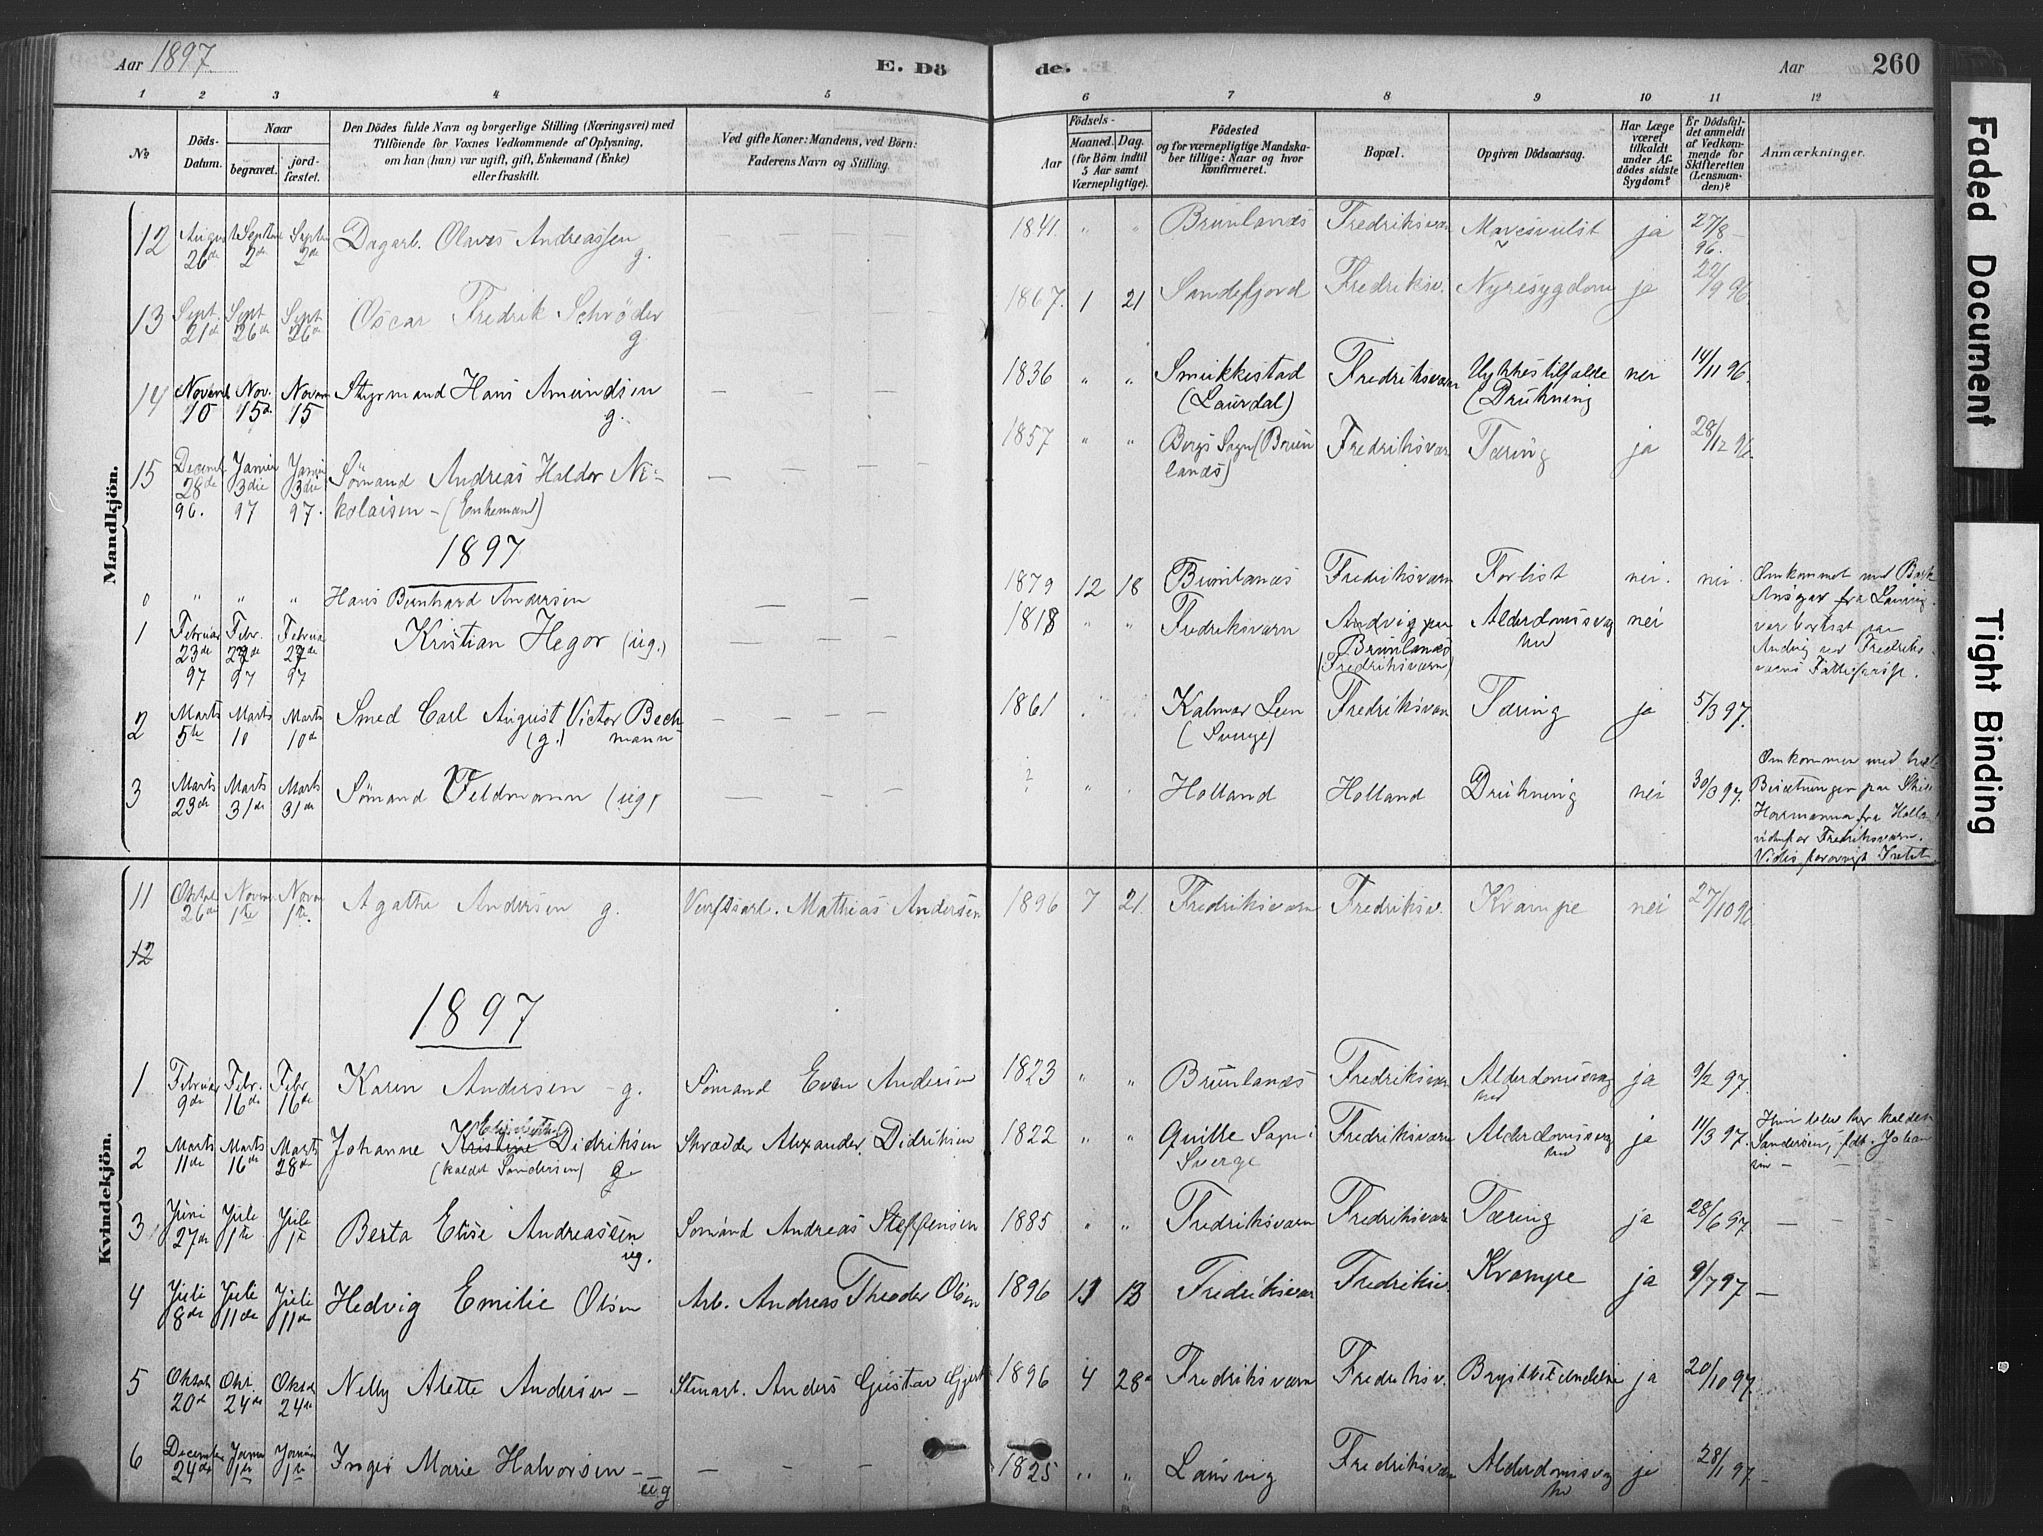 Aar 1897
E. Dö
de.
Aar
260
1 2 3 4 5 6 7 8 9 10 11 12
No
Döds-Datum.
Naar
begravet.
jord-fæstet.
Den Dödes fulde Navn og borgerlige Stilling (Næringsvei) med
Tilföiende for Voxnes Vedkommende af Oplysning,
om han (hun) var ugift, gift, Enkemand (Enke)
eller fraskilt.
Ved gifte Koner: Mandens, ved Börn:
Faderens Navn og Stilling.
Födsels-
Aar
Maaned. Dag.
(for Börn indtil
5 Aar samt
Værnepligtige).
Födested
og for værnepligtige Mandska-
ber tillige: Naar og hvor
konfirmeret.
Bopæl.
Opgiven Dödsaarsag.
Har Læge
været
tilkaldt
under Af-
dödes sidste
Sygdom?
Er Dödsfal-
det anmeldt
af Vedkom-
mende for
Skifteretten
(Lensman-
den)?
Anmærkninger.
Mandkjön.
12 August 26de Septbr 2de Septbr 2de Dagarb. Olaves Andreassen g. — — — 1841. " " Brunlanæs Fredriksværn Mavesvulst ja 27/8 96.
13 Sept. 21de Sept 26de Sept 26de Oscar Fredrik Schrøder g. — — — 1867. 1 21 Sandefjord Fredriksv. Nyresygdom ja 22/9 96
14 Novemb 10 Nov. 15de Novem 15 Styrmand Hans Amundsen g. — — — 1836 " " Smukkestad (Laurdal) Fredriksværn Ulykkestilfælde (Drukning nei 14/11 96.
15 Decemb. 28de 96. Januar 3die 97 Januar 3die 97. Sømand Andreas Haldor Ni-
kolaisen — (Enkemand) — — — 1857 " " Bergs Sogn (Brun
lanæs) Fredriksværn Tæring ja 28/12 96
1897
0 " " " Hans Bernhard Andersen — — 1879 12 18 Brunlanæs Fredriksværn Forlist nei. nei. Omkommet med Bark
Ansgar fra Laurvig.
1 Februar 23de 97 Febr. 97 Februar 97 Kristian Hegor (ug.) — — — 1818 " " Fredriksværn Andvig paa
Brunlanæs
(Fredriksværn) Alderdomssvag
hed nei var bortsat paa
Andvig ved Fredriks-
værns Fattigforst.
2 Marts 5te Marts 10 Marts 10de Smed Carl August Victor Bech-
mann (g.) — — — 1861 Kalmar Len
(Sverige) Fredriksværn Tæring ja 5/3 97.
3 Marts 23de Marts 31de Marts 31de Sømand Feldmann (ug.) — — — ? " " Holland Holland Drukning nei 30/3 97. Omkommen med hele
Besætningen paa Skib
fra Holland
Fredriksværn.
Kvindekjön.
11 Oktob 26de Novem 1te Novem 1te Agathe Andersen g. Verftsarb. Mathias Andersen 1896 7 21. Fredriksværn Fredriksv. Krampe nei 27/10 96
12
1897
1 Februar 9de Febr. 16de Febr 16de Karen Andersen — g. Sømand Even Andersen 1823 " " Brunlanæs Fredriksværn Alderdomssvag
hed ja 9/2 97.
2 Marts 11de Marts 16de Marts 28de Johanne Kristine Didriksen
(kaldet Sandersen) g. Skrædder Alexander Didriksen 1822 " " Quille Sogn i
Sverge Fredriksværn Alderdomssvag
hed ja 11/3 97. Hun blev her kaldet
Sandersen, fdt. Johan
sen —
3 Juni 27de Juli 1te Juli 1te Berta Elise Andreassen ug. Sømand Andreas Steffensen 1885 " " Fredriksværn Fredriksværn Tæring ja 28/6 97. — — —
4 Juli 8de Juli 11de Juli 11de Hedvig Emilie Olsen Arb. Andreas Theodor Olsen 1896 11 13 Fredriksvær Fredriksv. Krampe ja 9/7 97. —
5 Oktob 20de Okt. 24de Oktob 24de Nelly Alette Andersen — Stenarb. Anders Gustav 1896 4 28 Fredriksværn Fredriksv. ja 20/10 97.
6 December 24de Januar 1te Januar 1te Inger Marie Halvorsen — ug — — — 1825 " " Laurvig Fredriksværn Alderdomssvag
hed ja 28/1 97. —
Faded Document
Tight Binding